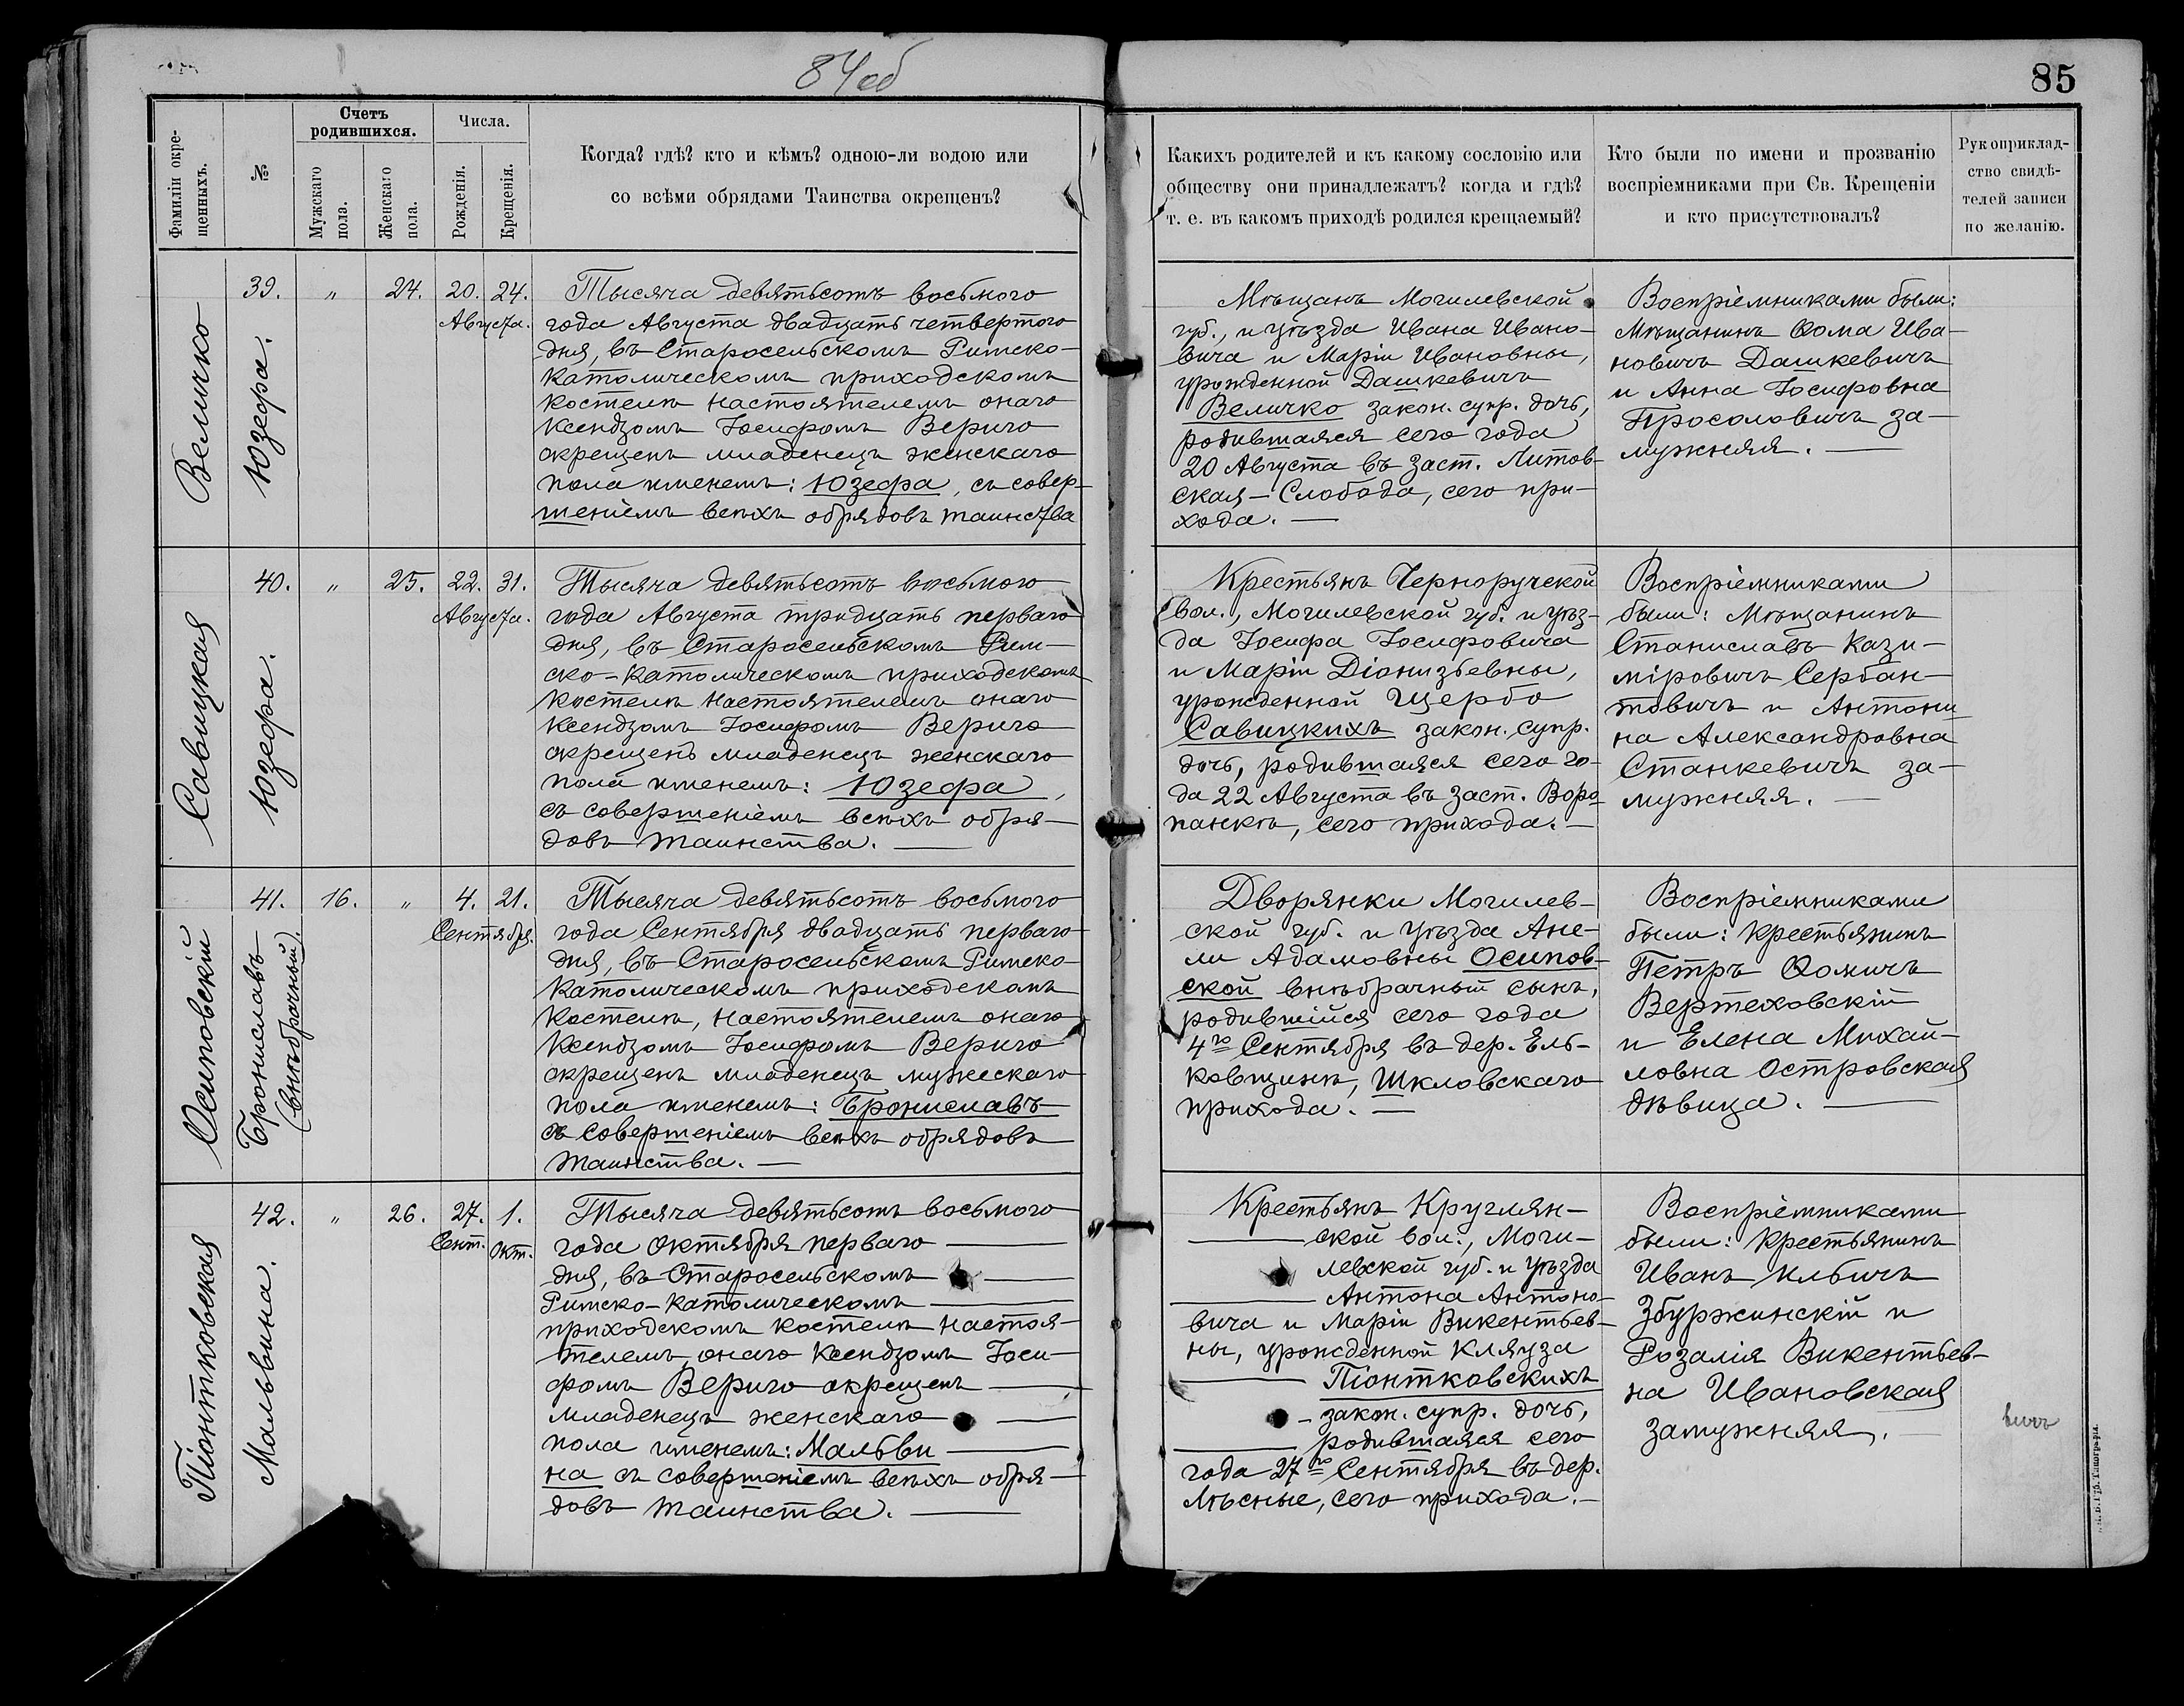 84об
85
Фамиліи окре-
щенныхъ.
№
Счетъ
родившихся.
Мужскаго
пола.
Женскаго
пола.
Числа.
Рожденія.
Крещенія.
Когда? гдѣ? кто и кѣмъ? одною-ли водою или
со всѣми обрядами Таинства окрещенъ?
Какихъ родителей и къ какому сословію или
обществу они принадлежатъ? когда и гдѣ?
т. е. въ какомъ приходѣ родился крещаемый?
Кто были по имени и прозванію
воспріемниками при Св. Крещеніи
и кто присутствовалъ?
Рукоприклад-
ство свидѣ-
телей записи
по желанію.
Величко
39.
Юзефа.
"
24.
20. 24.
Августа.
Тысяча девятьсотъ восьмого
года Августа двадцать четвертого
дня, въ Старосельскомъ Римско-
Католическомъ приходскомъ
костелѣ настоятелемъ онаго
Ксендзомъ Іосифомъ Верыго
окрещенъ младенецъ женскаго
пола именемъ: Юзефа, съ совер-
шеніемъ всѣхъ обрядовъ таинства
Мѣщанъ Могилевской
губ., и уѣзда Ивана Ивано-
вича и Маріи Ивановны,
урожденной Дашкевичъ
Величко закон. супр. дочь,
родившаяся сего года
20 Августа въ заст. Литов-
ская-Слобода, сего при-
хода. —
Воспріемниками были:
Мѣщанинъ Ѳома Ива-
новичъ Дашкевичъ
и Анна Іосифовна
Просоловичъ за-
мужняя. —
Савицкая
40.
Юзефа.
"
25.
22. 31.
Августа.
Тысяча девятьсотъ восьмого
года Августа тридцать перваго
дня, въ Старосельскомъ Рим-
ско-Католическомъ приходскомъ
костелѣ настоятелемъ онаго
Ксендзомъ Іосифомъ Верыго
окрещенъ младенецъ женскаго
пола именемъ: Юзефа,
съ совершеніемъ всѣхъ обря-
довъ таинства. —
Крестьянъ Черноручской
вол., Могилевской губ. и уѣз-
да Іосифа Іосифовича
и Маріи Діонизьевны,
урожденной Щербо
Савицкихъ закон. супр.
дочь, родившаяся сего го-
да 22 Августа въ заст. Воро-
панкѣ, сего прихода. —
Воспріемниками
были: Мѣщанинъ
Станиславъ Кази-
міровичъ Сербан-
товичъ и Антони-
на Александровна
Станкевичъ за-
мужняя. —
Осиповскій
41.
Брониславъ
(внѣбрачный).
16.
"
4. 21.
Сентября.
Тысяча девятьсотъ восьмого
года Сентября двадцать перваго
дня, въ Старосельскомъ Римско-
Католическомъ приходскомъ
Костелѣ, настоятелемъ онаго
Ксендзомъ Іосифомъ Верыго
окрещенъ младенецъ мужескаго
пола именемъ: Брониславъ
съ совершеніемъ всѣхъ обрядовъ
таинства. —
Дворянки Могилев-
ской губ. и уѣзда Ане-
ли Адамовны Осипов-
ской внѣбрачный сынъ,
родившійся сего года
4го Сентября въ дер. Ель-
ковщинѣ, Шкловскаго
прихода. —
Воспріемниками
были: Крестьянинъ
Петръ Ѳомичъ
Вертеховскій
и Елена Михай-
ловна Островская
дѣвица. —
Піонтковская
42.
Мальвина.
"
26.
27. 1.
Сент. Окт.
Тысяча девятьсотъ восьмого
года Октября перваго —
дня, въ Старосельскомъ —
Римско-Католическомъ —
приходскомъ костелѣ настоя-
телемъ онаго Ксендзомъ Іоси-
фомъ Верыго окрещенъ —
младенецъ женскаго —
пола именемъ: Мальви —
на съ совершеніемъ всѣхъ обря-
довъ таинства. —
Крестьянъ Круглян-
— ской вол., Моги-
левской губ. и уѣзда
— Антона Антоно-
вича и Маріи Викентьев-
ны, урожденной Кляуза
— Піонтковскихъ
— закон. супр. дочь,
— родившаяся сего
года 27го Сентября въ дер.
Лѣсные, сего прихода. —
Воспріемниками
были: Крестьянинъ
Иванъ Ильичъ
Збуржинскій и
Розалія Викентьев-
на Ивановская
замужняя.
вичъ